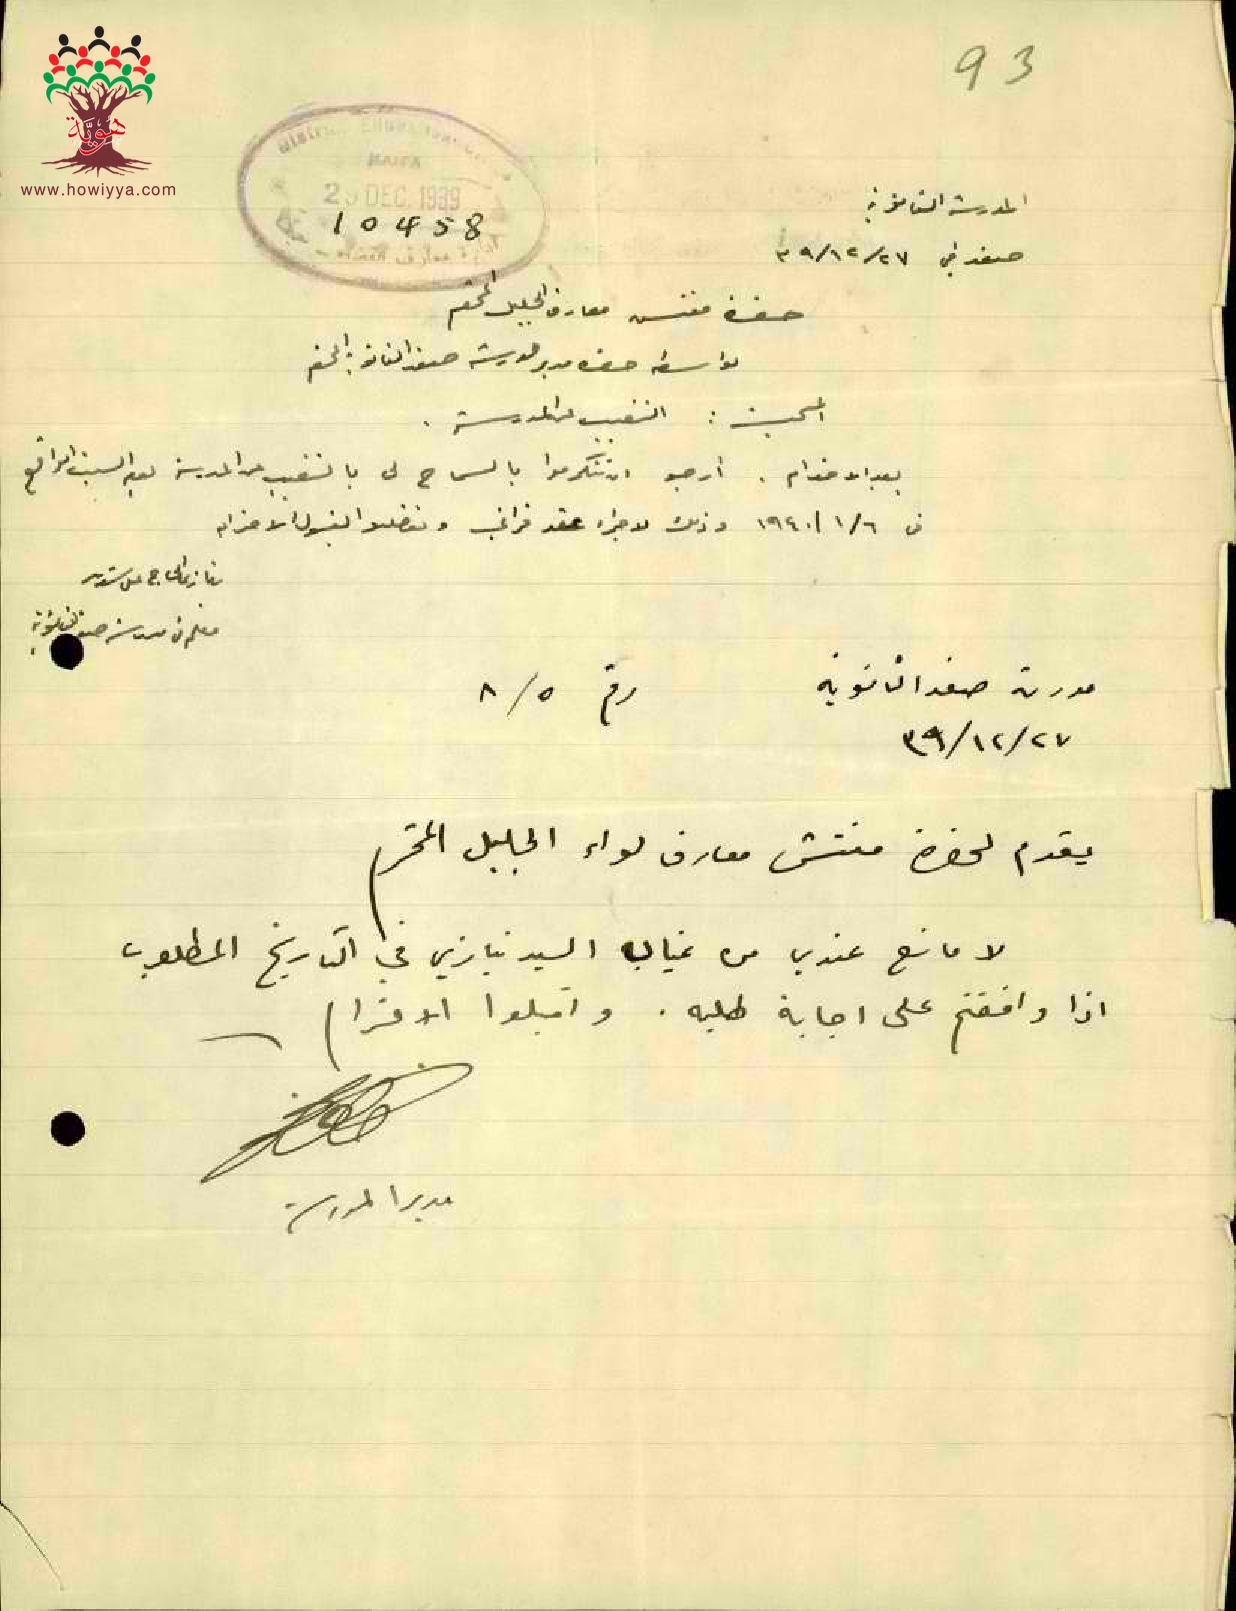 93
هويّة
www.howiyya.com
District Education
HAIFA
29 DEC. 1939
10458
المدرسة الثانوية
صفد في ٢٧/١٢/٣٩
حضرة مفتش معارف الجليل المحترم
بواسطة حضرة مدير مدرسة صفد الثانوية المحترم
المبحث : التغيب عن المدرسة .
بعد الاحترام . أرجو ان تتكرموا بالسماح لي بالتغيب عن المدرسة يوم السبت الواقع
في ١/٦/ ١٩٤٠ وذلك لاجراء عقد قراني وتفضلوا بقبول الاحترام
نيازي الحاج علي
معلم في مدرسة صفد الثانوية
مدرسة صفد الثانوية رقم ٨/٥
٢٧/١٢/٣٩
يقدم لحضرة مفتش معارف لواء الجليل المحترم
لا مانع عندي من غياب السيد نيازي في التاريخ المطلوب
اذا وافقتم على اجابة طلبه . واقبلوا الاحترام
مدير المدرسة